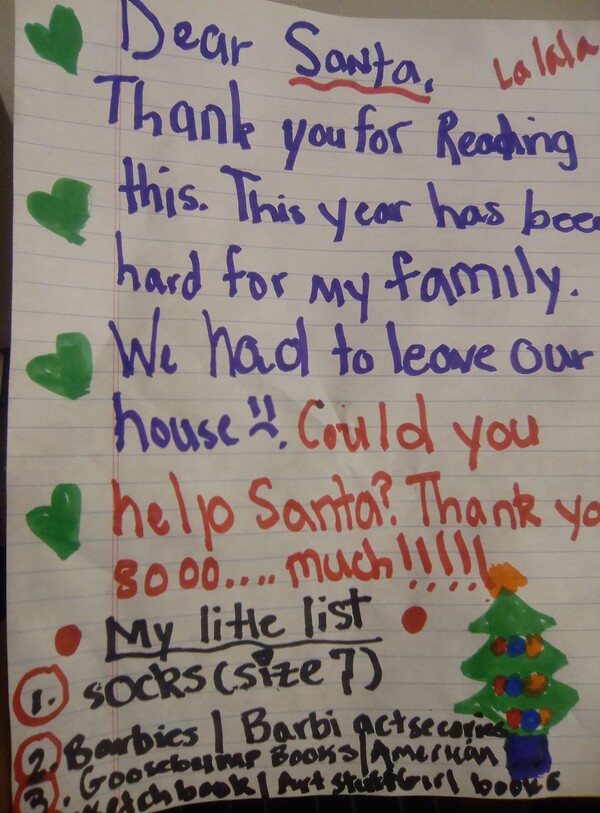 Dear Santa,
La lala
Thank you for Reading
this. This year has bee
hard for My family.
We had to leave our
house. Could you
help Santa? Thank yo
sooo.... much!!!!!
My little list
1. socks (size 7)
2. Barbies | Barbi actsecories
Goosebump Books | American
3. ketchbook | Art stuff Girl books